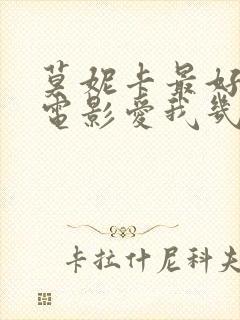 莫妮卡最好
电影爱我几
卡拉什尼科夫